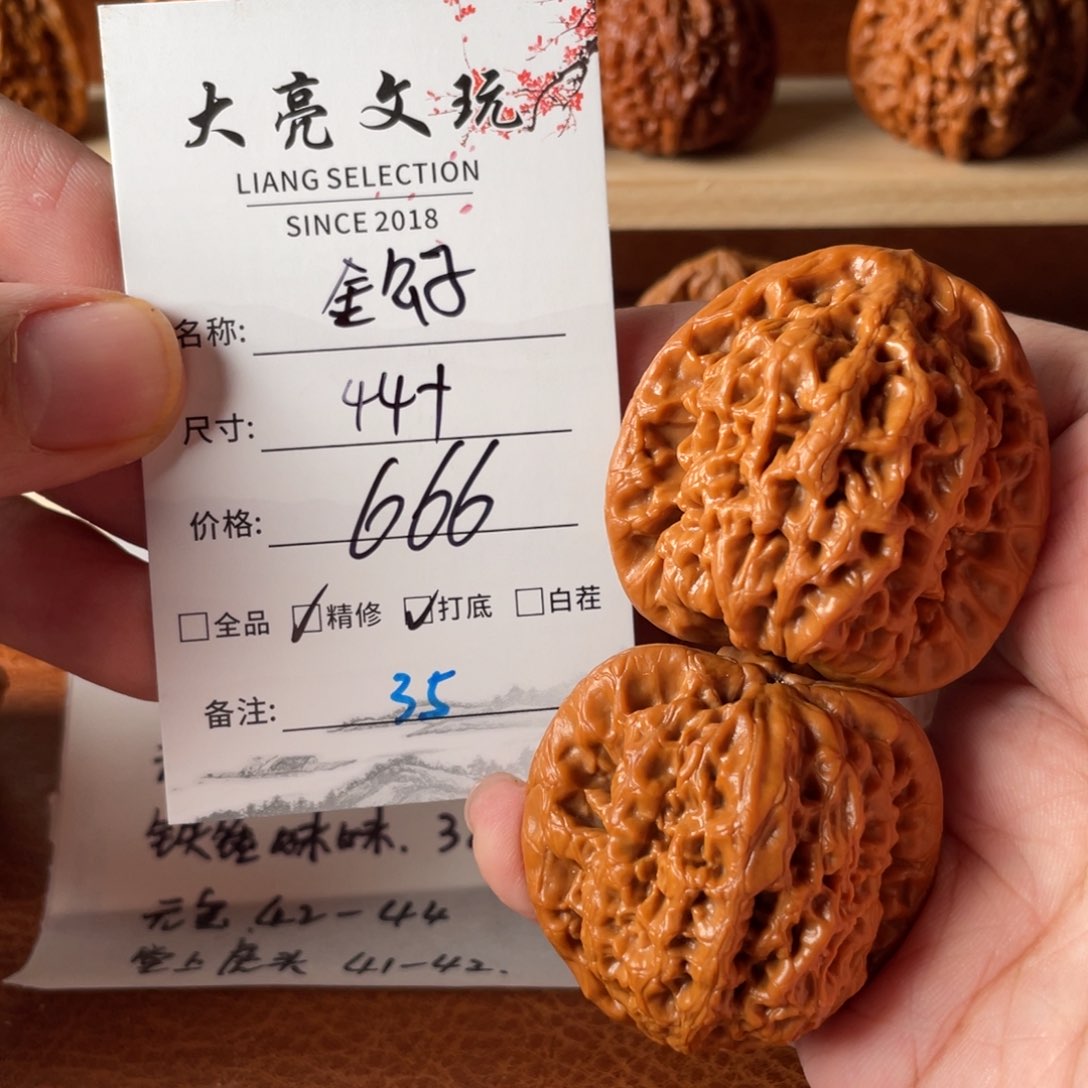 大亮文玩
LIANG SELECTION
SINCE 2018
名称: 金公子
尺寸: 44+
价格: 666
☐全品 ☑精修 ☑打底 ☐白茬
备注: 35
铁锤妹妹. 3
元宝 42-44
掌上虎头 41-42.